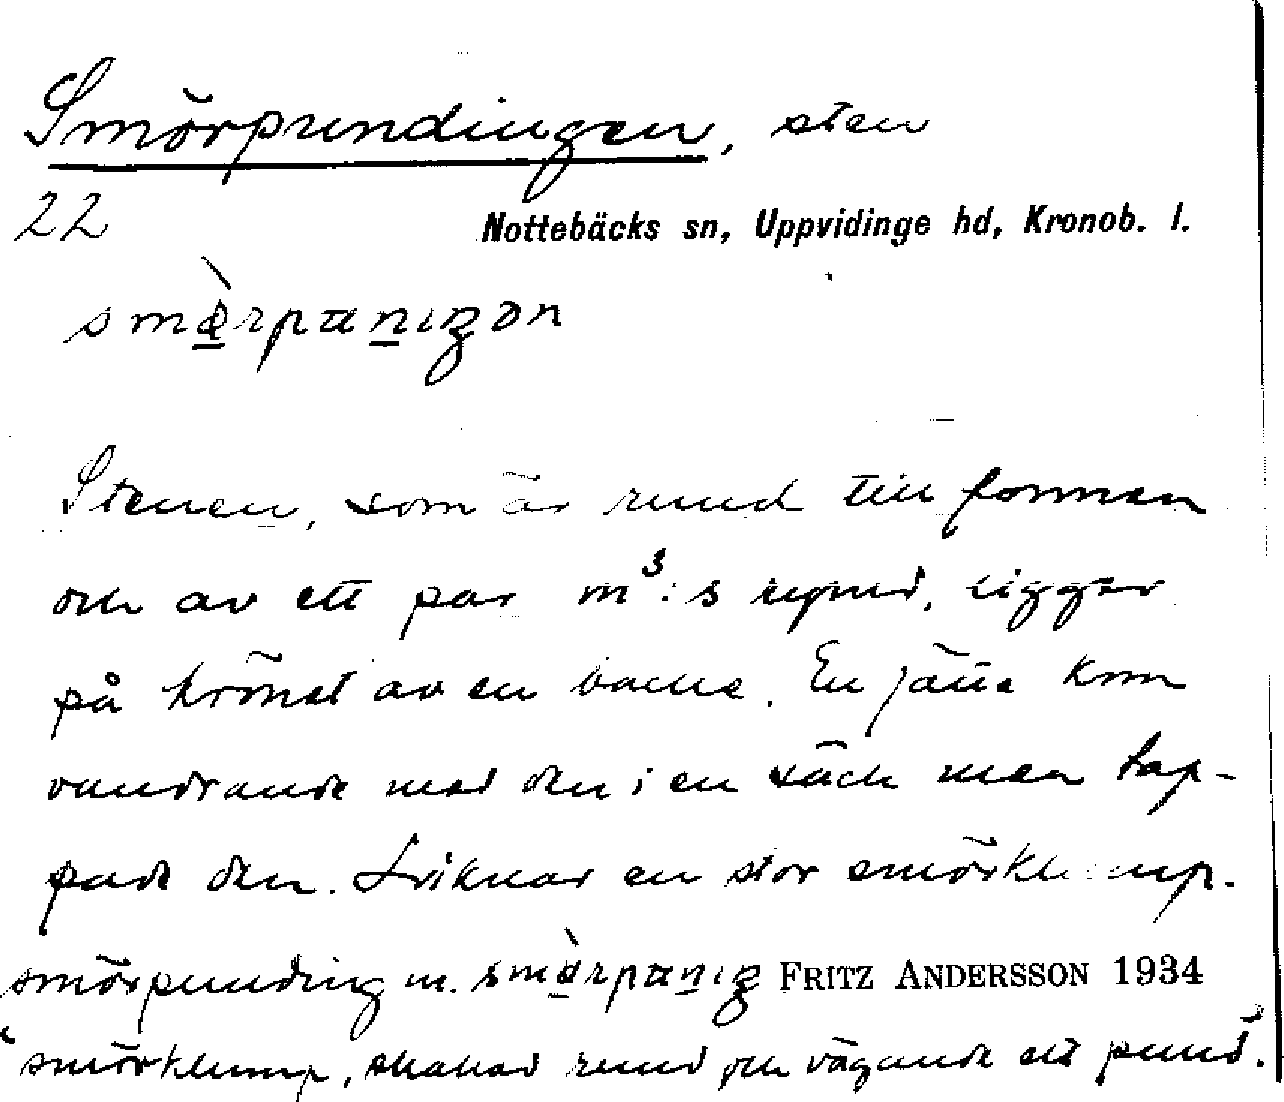 Smörpundingen, sten
22
Nottebäcks sn, Uppvidinge hd, Kronob. l.
Stenen, som är rund till formen
och av ett par m³:s rymd, ligger
på krönet av en backe. En jätte kom
vandrande med den i en säck men tap-
pade den. Liknar en stor smörklump.
smörpunding m. FRITZ ANDERSSON 1934
"smörklump, skakad rund och vägande ett pund".